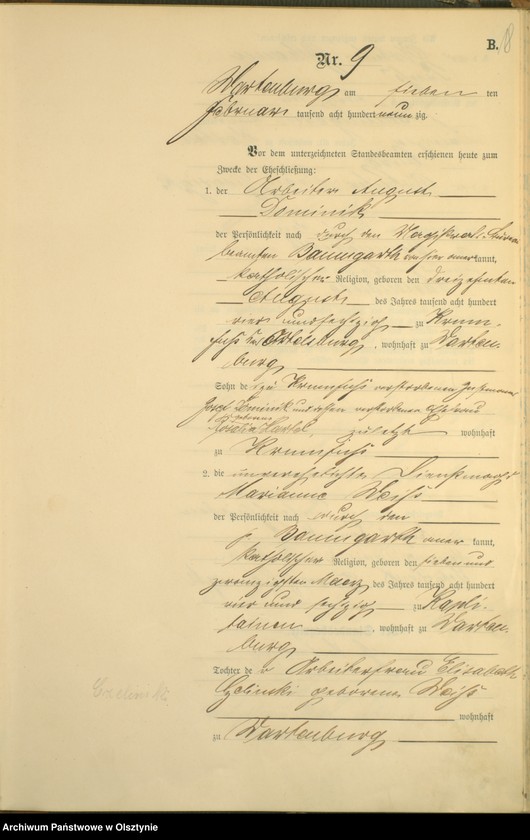 B. 18
Nr. 9
Wartenburg am sieben ten
Februar tausend acht hundert neun zig.
Vor dem unterzeichneten Standesbeamten erschienen heute zum
Zwecke der Eheschließung:
1. der Arbeiter August
Dominik
der Persönlichkeit nach durch den Magistrats-
beamten Baumgarth kannt,
katholischer Religion, geboren den dreizehnten
August des Jahres tausend acht hundert
vier und sechzig zu Krum-
fuß Kr. Ortelsburg, wohnhaft zu Warten-
burg
Sohn de s zu Krumfuß verstorbenen
Josef Dominik und dessen verstorbenen Ehefrau
geborene
Rosalia, zuletzt wohnhaft
zu Krumfuß
2. die unverehelichte Dienstmagd
Marianna Weiß
der Persönlichkeit nach durch den
p. Baumgarth aner kannt,
katholischer Religion, geboren den sieben und
zwanzigsten Maerz des Jahres tausend acht hundert
vier und sechzig zu
, wohnhaft zu Warten-
burg
Tochter de r Arbeiterfrau Elisabeth
geborene Weiß
wohnhaft
zu Wartenburg
Archiwum Państwowe w Olsztynie